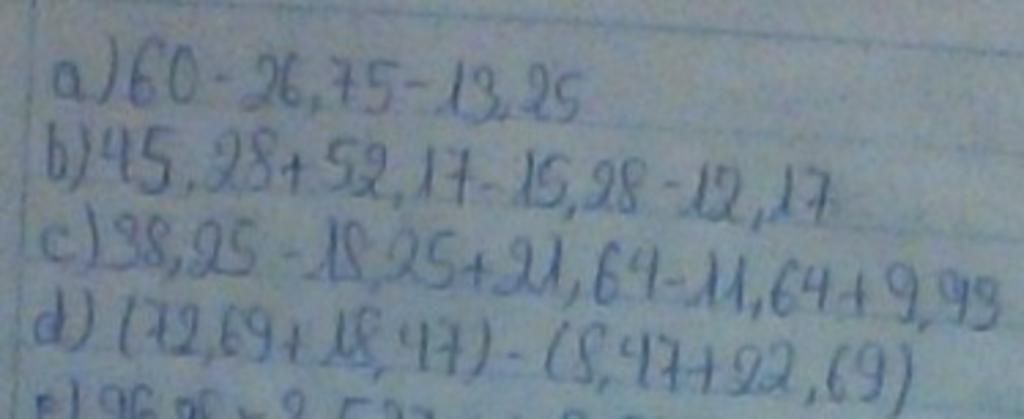 a) 60 - 26,75 - 13,25
b) 45,28 + 52,17 - 15,28 - 12,17
c) 38,25 - 18,25 + 21,64 - 11,64 + 9,99
d) (72,69 + 18,47) - (8,47 + 22,69)